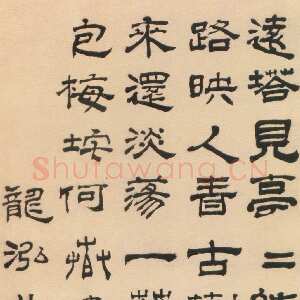 遠塔見亭二
路映人春古
來還淡蕩一
包梅坨何
龍泓
Shufawang.CN